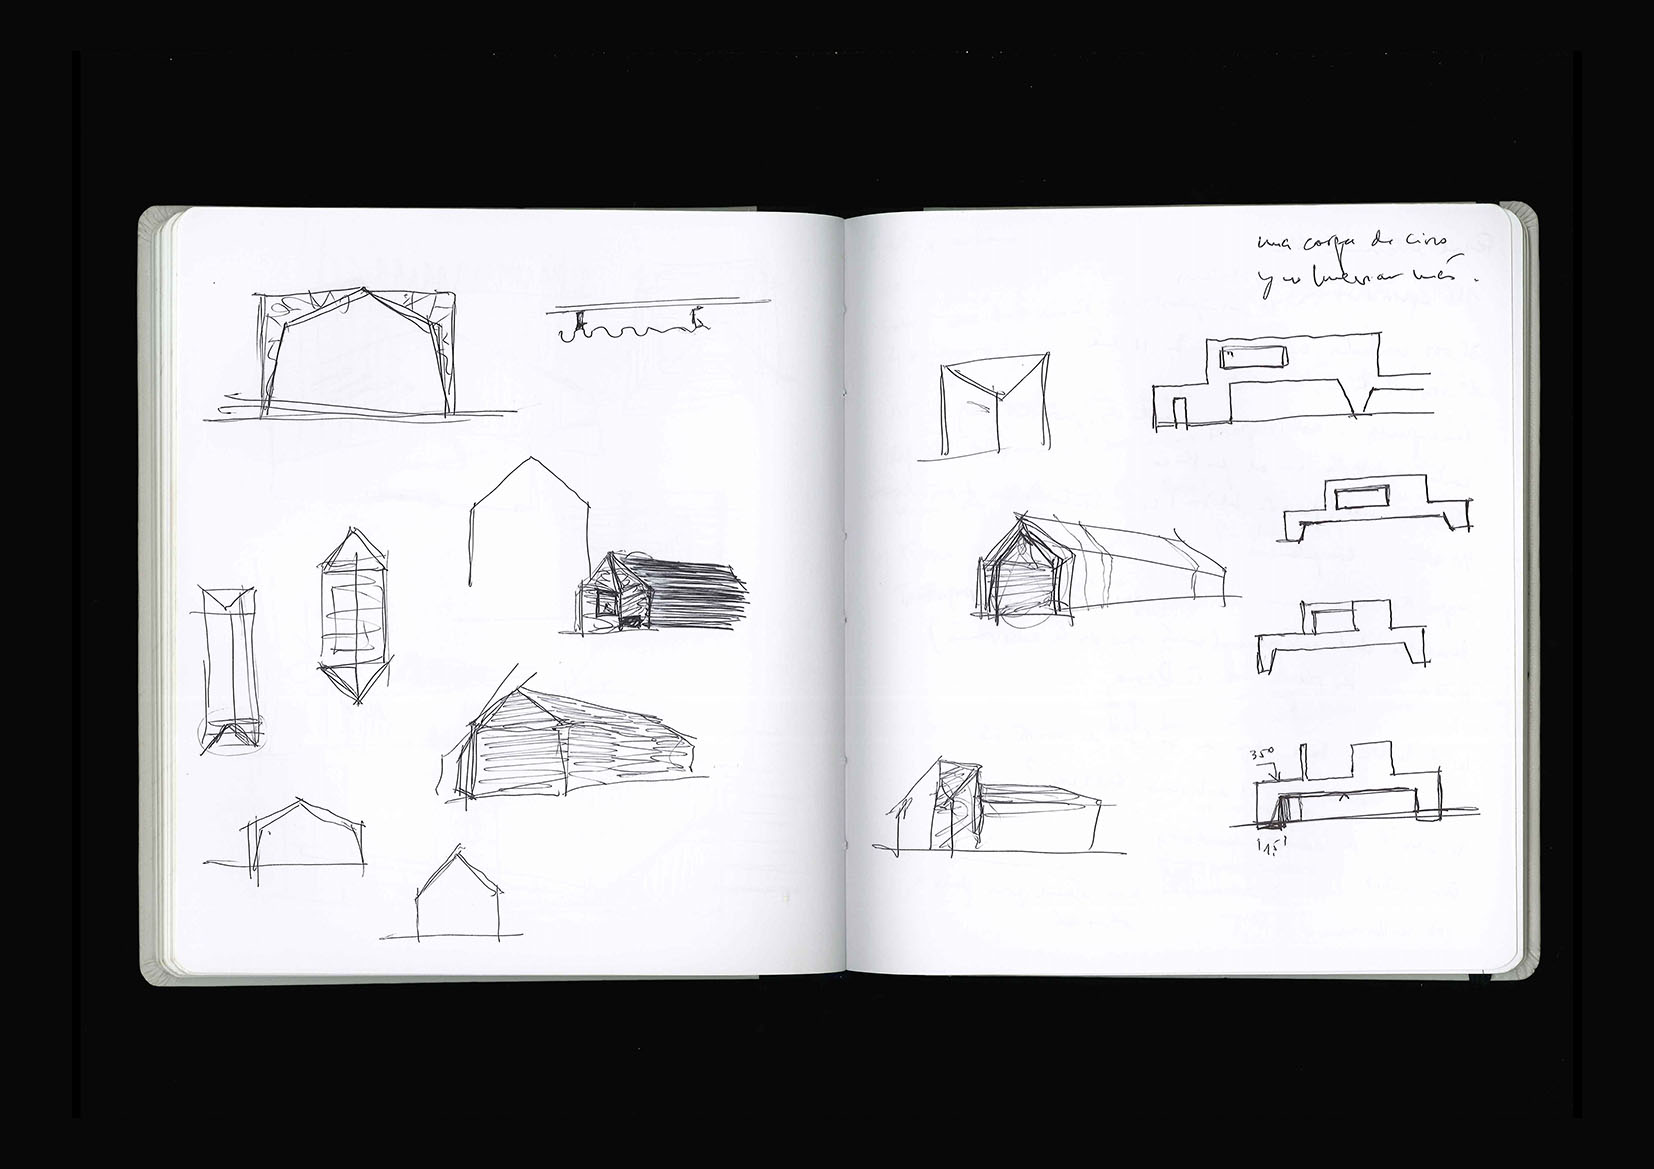 una carpa de circo
y no más.
350
1,5